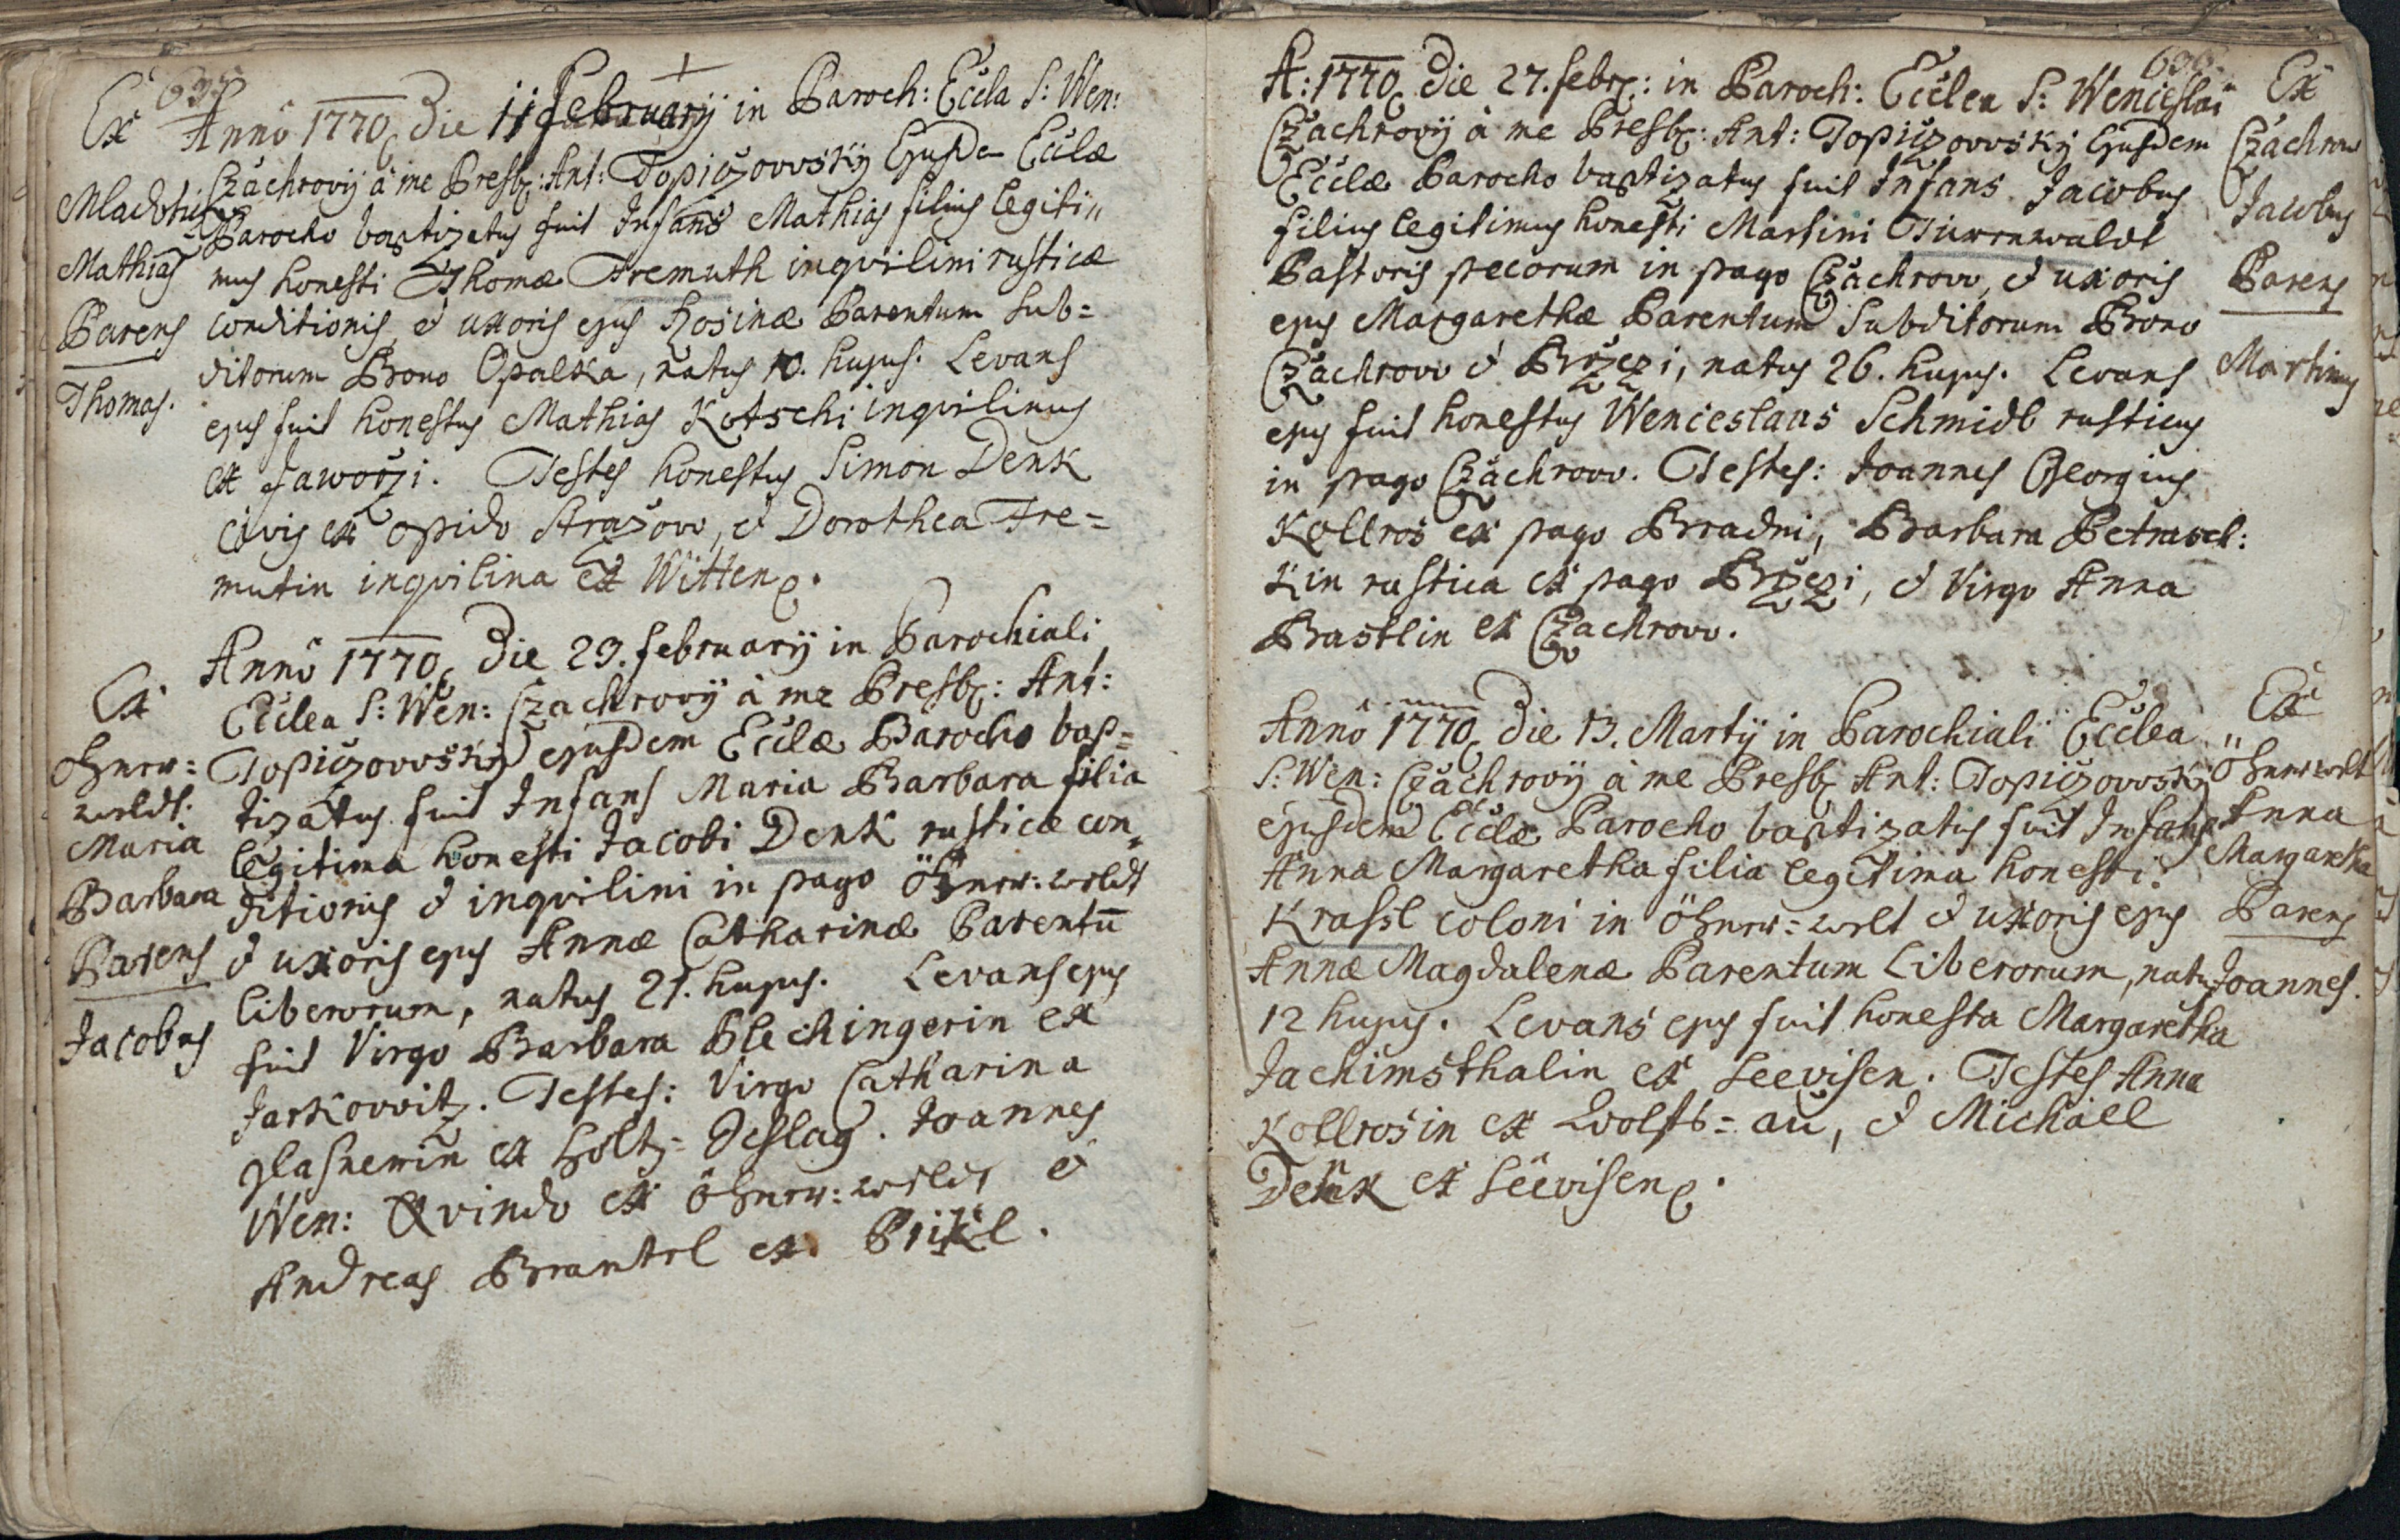 Ex
Mladotitz
Mathias
Parens
Thomas.
Anno 1770 Die 11 February in Paroch: Eccla S: Wen:
Czachrovÿ à me Presb: Ant: Topiczovvsky Ejusde Ecclæ
Parocho baptizatus fuit Infans Mathias filius legiti„
mus honesti Thomæ Fremuth inqvilini rusticæ
conditionis, et uxoris ejus Rosinæ Parentum Sub=
ditorum Prono Opalka, natus 10. hujus. Levans
ejus fuit honestus Mathias Kotschi inqvilinus
ex Jaworzi. Testes honestus Simon Denk
civis ex opido Strazovv, et Dorothea Fre=
mutin inqvilina ex Witten.
Ex
öhnrr:
weldt.
Maria
Barbara
Parens
Jacobus
Anno 1770 Die 23. february in Parochiali
Ecclea S: Wen: Czachrovÿ à me Presb: Ant:
Topiczovvsky ejusdem Ecclæ Parocho bap=
tizatus fuit Infans Maria Barbara filia
legitima honesti Jacobi Denk rusticæ con„
ditionis et inqvilini in pago öhnrr: weldt
et uxoris ejus Annæ Catharinæ Parentu
liberorum, natus 21. hujus. Levans ejus
fuit Virgo Barbara Plechingerin ex
Jarkovvitz. Testes: Virgo Catharina
ex Holtz=Schlag. Joannes
Wen: Qvindo ex öhnrr: weldt et
Andreas Brantel ex Prikl.
636.
A: 1770 Die 27. febr: in Paroch: Ecclea S: Wenceslai
Czachrovÿ à me Presb: Ant: Topiczovvsky Ejusdem
Ecclæ Parocho baptizatus fuit Infans Jacobus
filius legitimus honesti Martini Türrnwaldt
Pastoris pecorum in pago Czachrovv, et uxoris
ejus Margarethæ Parentum Subditorum Prono
Czachrovv et Brzezi, natus 26. hujus. Levans
ejus fuit honestus Wenceslaus Schmidl rusticus
in pago Czachrovv. Testes: Joannes Georgius
Kollros ex pago Bradni, Barbara Petrasch:
kin rustica ex pago Brzezi, et Virgo Anna
Brastlin ex Czachrovv.
Ex
Czachrow
Jacobus
Parens
Martinus
Anno 1770 Die 13. Martÿ in Parochiali Ecclea
S: Wen: Czachrovÿ à me Presb Ant: Topiczovvsky
ejusdem Ecclæ Parocho baptizatus fuit Infans
Anna Margaretha filia legitima honesti
Krassl coloni in öhnrr=welt et uxoris ejus
Annæ Magdalenæ Parentum Liberorum, natus
12 hujus. Levans ejus fuit honesta Margaretha
Jachimsthalin ex Seevisen. Testes Anna
Kollrosin ex Wolfs=au, et Michael
Denk ex Seevisen.
Ex
öhnrrwelt
Anna
Margaretha
Parens
Joannes.